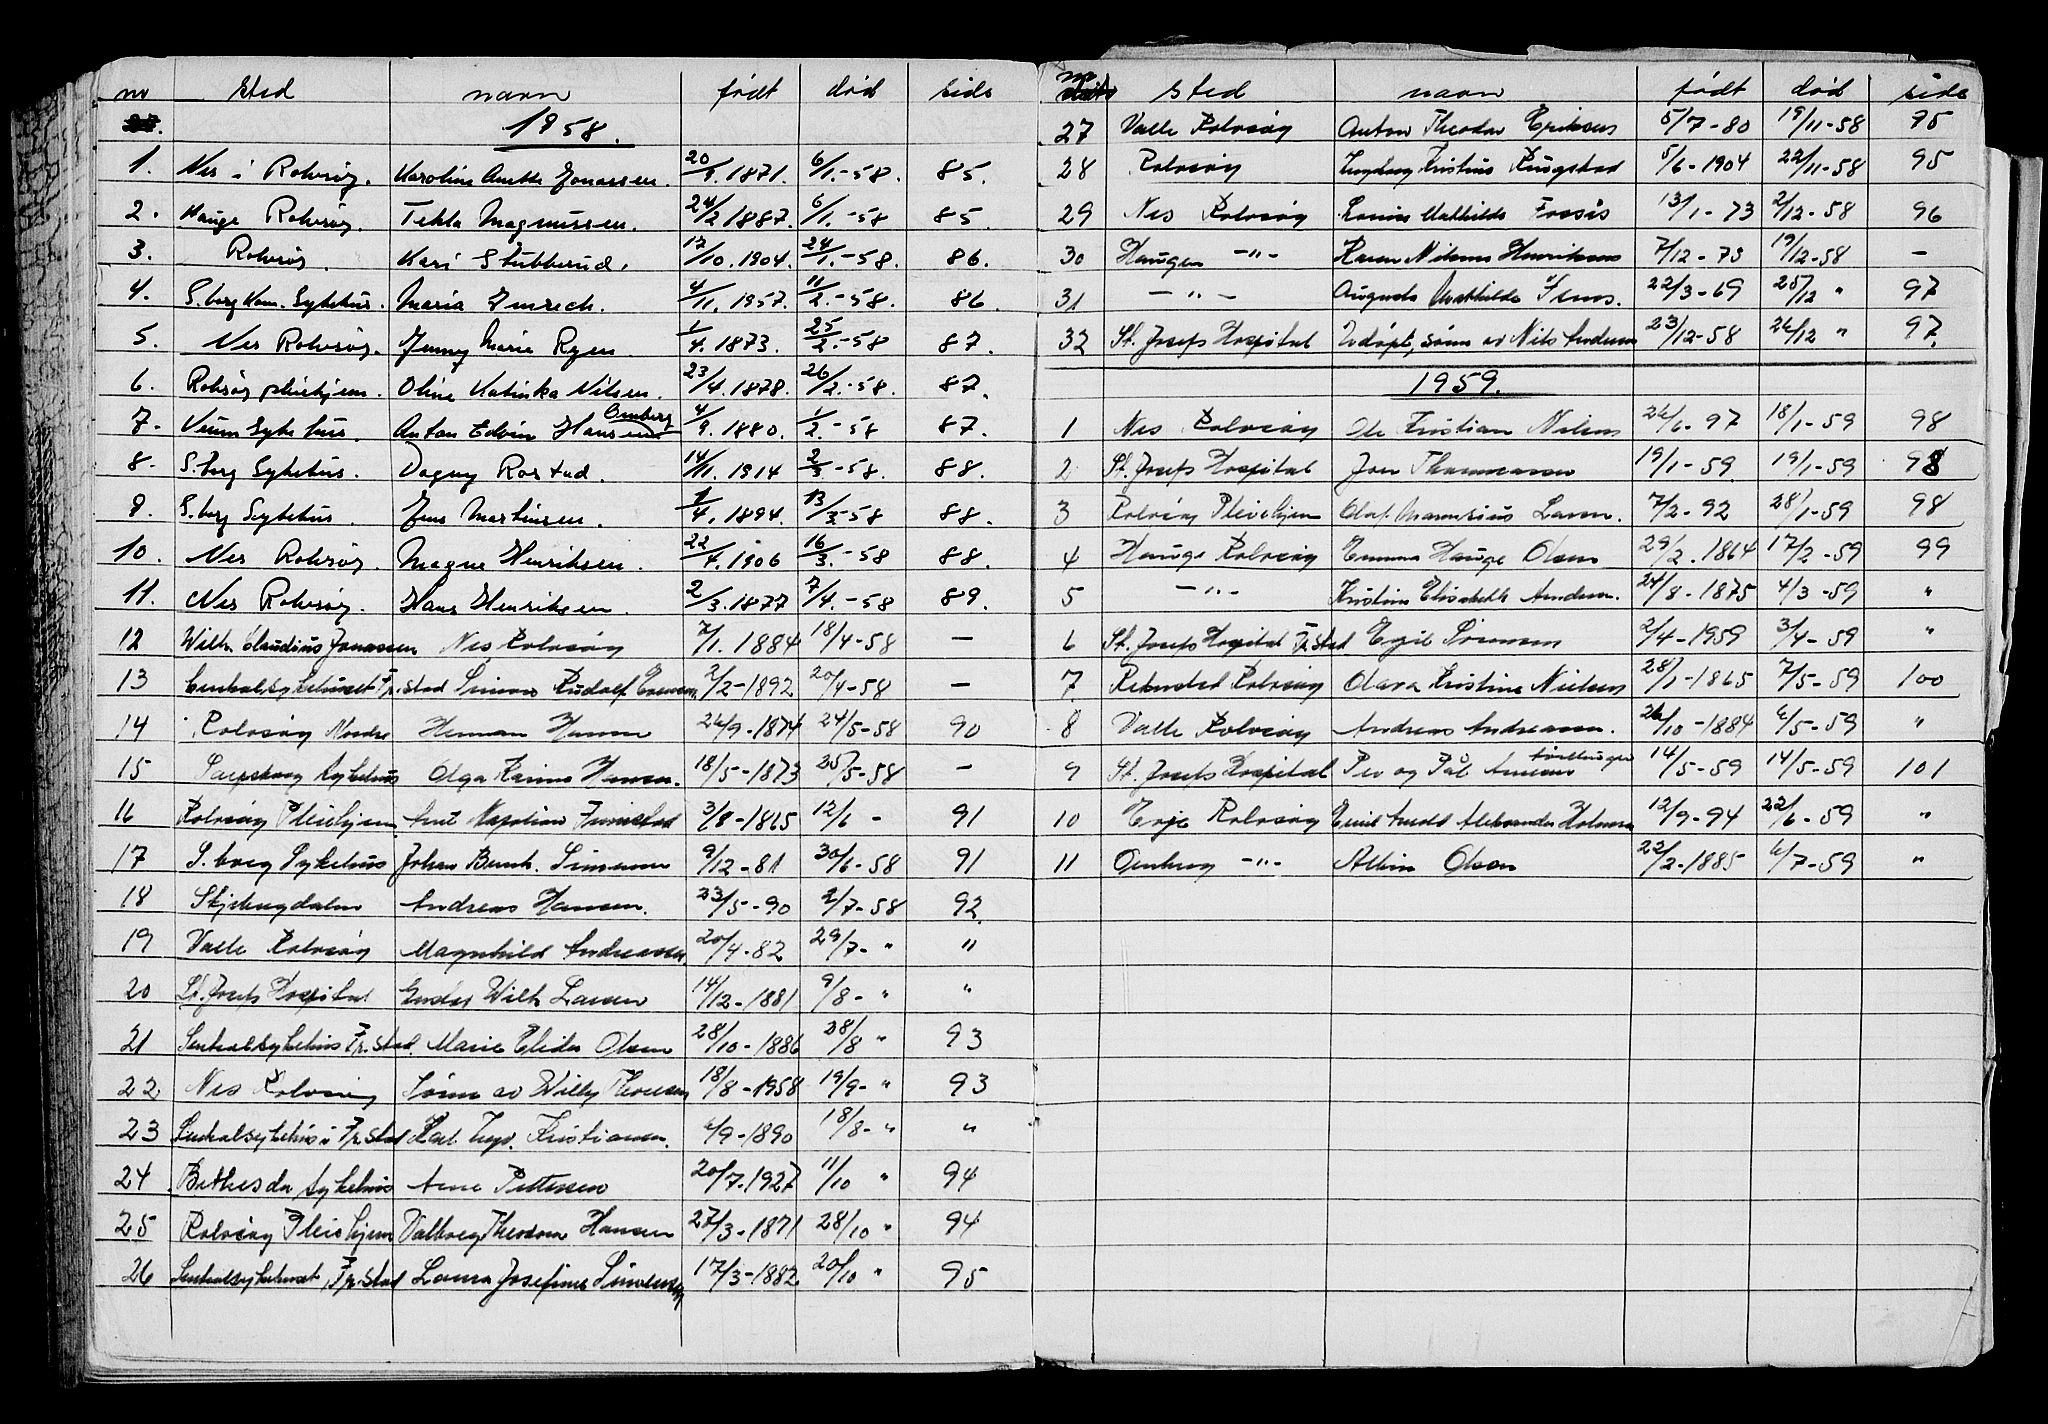 nr sted navn født død side
1958.
1. Nes i Rolvsøy. Karoline Anette Jonassen. 20/9. 1871. 6/1.-58. 85.
2. Hauge Rolvsøy. Tekla Magnussen. 24/2. 1887. 6/1.-58 85.
3. Rolvsøy. Kari Stubberud. 17/10. 1904. 24/1.-58. 86.
4. S.borg Kom. Sykehus. Maria 4/11. 1957. 11/2.-58. 86.
5. Nes Rolvsøy. Jenny Marie Ryen 1/4. 1873. 25/2.-58 87.
6. Rolvsøy pleiehjem. Oline Katinka Nilsen. 23/4. 1878. 26/2.-58. 87.
7. Veum Sykehus. Anton Edvin Hansen Omberg 4/9. 1880. 1/2.-58 87.
8. S.borg Sykehus. Dagny Rostad. 14/11. 1914 2/3.-58. 88.
9. S.borg Sykehus. Jens Martinsen. 1/4. 1894. 13/3.-58 88.
10. Nes Rolvsøy. Magne Henriksen. 22/7. 1906 16/3.-58 88.
11. Nes Rolvsøy. Hans Henriksen. 2/3. 1877 7/4.-58 89.
12 Wilh. Claudius Jonassen Nes Rolvsøy 7/1. 1884 18/4-58 —
13 Centralsykehuset Fr.stad Simon Rudolf 2/2-1892 20/4-58 —
14 Rolvsøy Nordre Herman Hansen 26/9-1874 24/5-58 90
15 Sarpsborg Sykehus Olga Karine Hansen. 18/5-1873 25/5-58 —
16 Rolvsøy Pleiehjem Anet Napolion 3/8-1865 12/6 - 91
17 S.borg Sykehus Johan Bernh. Simensen 9/12-81 30/6-58 91
18 Andreas Hansen. 23/5-90 2/7-58 92.
19 Valle Rolvsøy Magnhild Andreassen 20/4-82 29/7- " "
20 St. Josefs Hospital Gustav Wilh Larsen 14/12-1881 9/8- " "
21 Sentralsykehus Fr.stad. Marie Elida Olsen 28/10-1886 28/8 " 93
22 Nes Rolvsøy Sønn av Willy Thoresen 18/8-1958 19/9- " 93
23 Sentralsykehus i Fr.stad Karl Ingv. Kristiansen. 6/9-1890 18/8- " "
24 Bethesda sykehus Arne Pettersen 20/7-1927 11/10 " 94
25 Rolvsøy Pleiehjem Valborg Theodora Hansen 27/3-1871 28/10 " 94
26 Sentralsykehuset, Fr.stad Laura Josefine Simensen 17/3-1882 20/10 " 95
nr sted navn født død side
27 Valle Rolvsøy Anton Theodor Eriksen 5/7-80 19/11-58 95
28 Rolvsøy Ingborg Kristine Ringstad 5/6-1904 22/11-58 95
29 Nes Rolvsøy Lovise Mathilde Fossås 13/1-73 2/12-58 96
30 Haugen -"- Karen Nilsine Henriksen 7/12-73 19/12-58 -
31 -"- Augusta Mathilde 22/3-69 25/12 " 97
32 St. Josefs Hospital Udøpt, sønn av Nils Andersen 23/12-58 26/12 " 97.
1959.
1 Nes Rolvsøy Ole Kristian Nilsen 26/6-97 18/1-59 98
2 St. Josefs Hospital Jon Thommassen 19/1-59 19/1-59 98
3 Rolvsøy Pleiehjem Olaf Larsen. 7/2-92 28/1-59 98
4 Hauge Rolvsøy Emma Hauge Olsen 29/2. 1864 17/2-59 99
5 -"- Kristine Elisabeth Andersen. 24/8-1875 4/3-59 "
6 St. Josefs Hospital Fr.stad Egil Sørensen 2/4-1959 3/4-59 "
7 Rekustad Rolvsøy Olava Kristine Nielsen 28/1-1865 7/5-59 100
8 Valle Rolvsøy Andreas Andreassen. 26/10-1884 6/5-59 "
9 St. Josefs Hospital Per og Pål tvillinger 14/5-59 14/5-59 101
10 Evje Rolvsøy Emil Arnold Aleksander 12/9-94 22/6-59 "
11 Omberg -"- Albin Olsen 22/2-1885 6/7-59 "